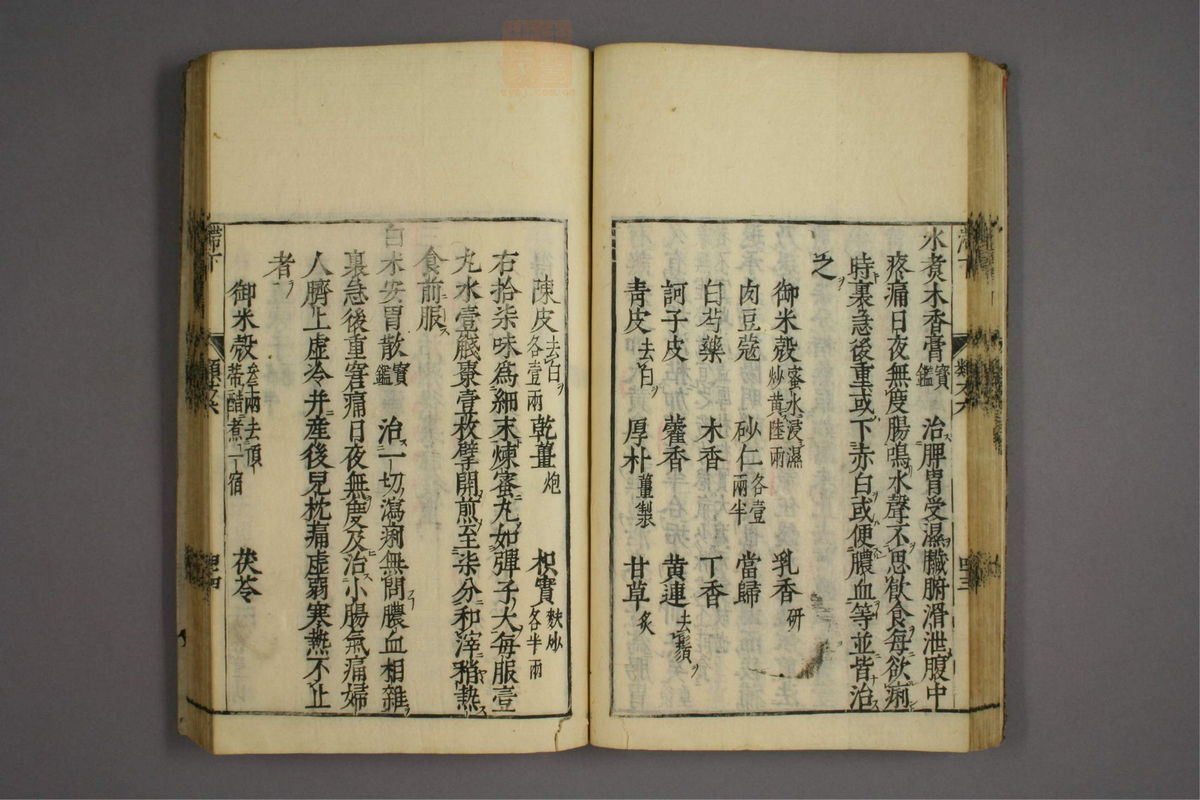 水煮木香膏寳鑑 治脾胃受濕臟腑滑泄腹中
疼痛日夜無度腸鳴水聲不思飲食每欲痢
時裏急後重或下赤白或便膿血等並皆治
之
御米殻蜜水浸濕炒黄陸兩 乳香研
肉豆蔻 砂仁各壹兩半 當歸
白芍藥 木香 丁香
訶子皮 藿香 黄連去鬚
青皮去白 厚朴薑製 甘草炙
陳皮去白各壹兩 乾薑炮 枳實麩炒各半兩
右拾柒味爲細末煉蜜丸如彈子大每服壹
丸水壹盞棗壹枚擘開煎至柒分和滓稍熱
食前服
白朮安胃散寳鑑 治一切瀉痢無問膿血相雜
裏急後重窘痛日夜無度及治小腸氣痛婦
人臍上虛冷并産後兒枕痛虛弱寒熱不止
者
御米殻叁兩去頂蒂醋煮一宿 茯苓